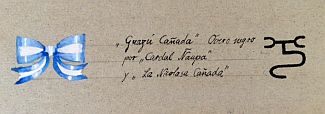 „Guazú Cañada" Overo negro
por „Cardal Ñaupa"
y „La Nicolasa Cañada"